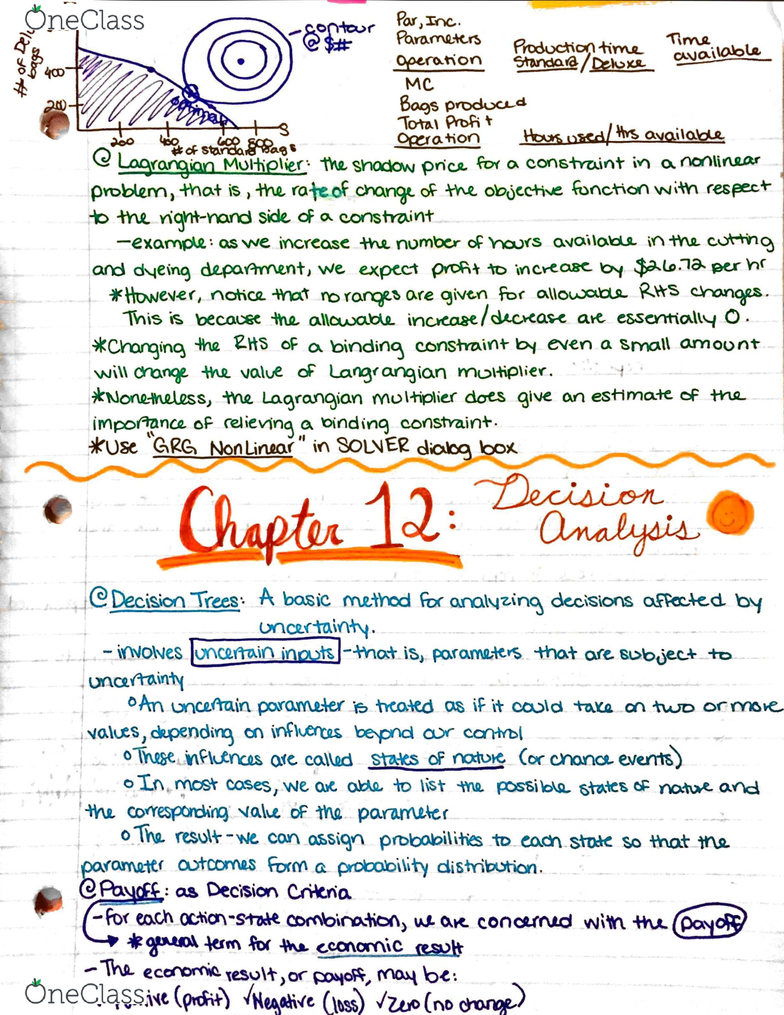 OneClass
# of Delu
bags
400
200
200
400
600
800
S
# of standard bags
optimal
contour
@ $#
Par, Inc.
Parameters
Operation
Production time
Standard/Deluxe
Time
available
MC
Bags produced
Total Profit
Operation
Hours used/hrs available
@ Lagrangian Multiplier: the shadow price for a constraint in a nonlinear
problem, that is, the rate of change of the objective function with respect
to the right-hand side of a constraint
-example: as we increase the number of hours available in the cutting
and dyeing department, we expect profit to increase by $26.72 per hr
*However, notice that no ranges are given for allowable RHS changes.
This is because the allowable increase/decrease are essentially 0.
*Changing the RHS of a binding constraint by even a small amount
will change the value of Langrangian multiplier.
*Nonetheless, the Lagrangian multiplier does give an estimate of the
importance of relieving a binding constraint.
*Use "GRG NonLinear" in SOLVER dialog box
Chapter 12: Decision
Analysis
@ Decision Trees: A basic method for analyzing decisions affected by
uncertainty.
- involves uncertain inputs - that is, parameters that are subject to
uncertainty
° An uncertain parameter is treated as if it could take on two or more
values, depending on influences beyond our control
° These influences are called states of nature (or chance events)
° In most cases, we are able to list the possible states of nature and
the corresponding value of the parameter
° The result - we can assign probabilities to each state so that the
parameter outcomes form a probability distribution.
@ Payoff: as Decision Criteria
- for each action-state combination, we are concerned with the payoff
* general term for the economic result
- The economic result, or payoff, may be:
OneClass
ive (profit) √Negative (loss) √Zero (no change)